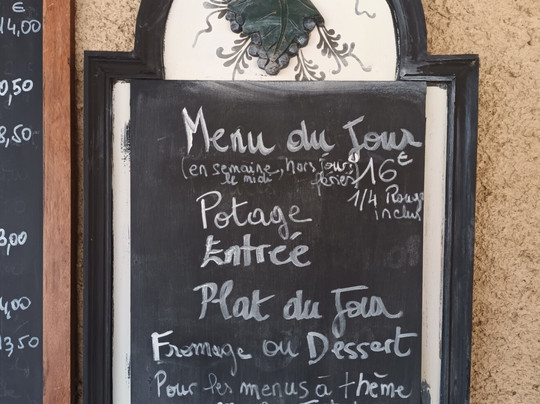 €
14,00
0,50
8,50
3,00
4,00
13,50
Menu du Jour
(en semaine, hors jours
le midi fériés)
16€
1/4 Rouge
inclus
Potage
Entrée
Plat du Jour
Fromage ou Dessert
Pour les menus à thème